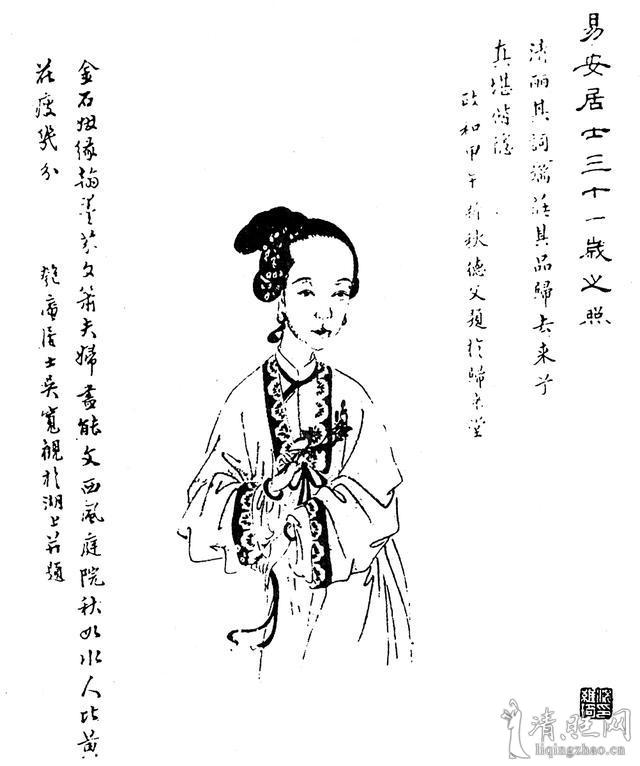 易安居士三十一歲之照
清丽其詞端莊其品歸去來兮
真堪偕隱
政和甲午新秋德父題於歸來堂
金石姻緣翰墨芬文簫夫婦盡能文西風庭院秋如水人比黃
花瘦幾分
匏庵居士吳寬觀於湖上并題
清照网
liqingzhao.cn